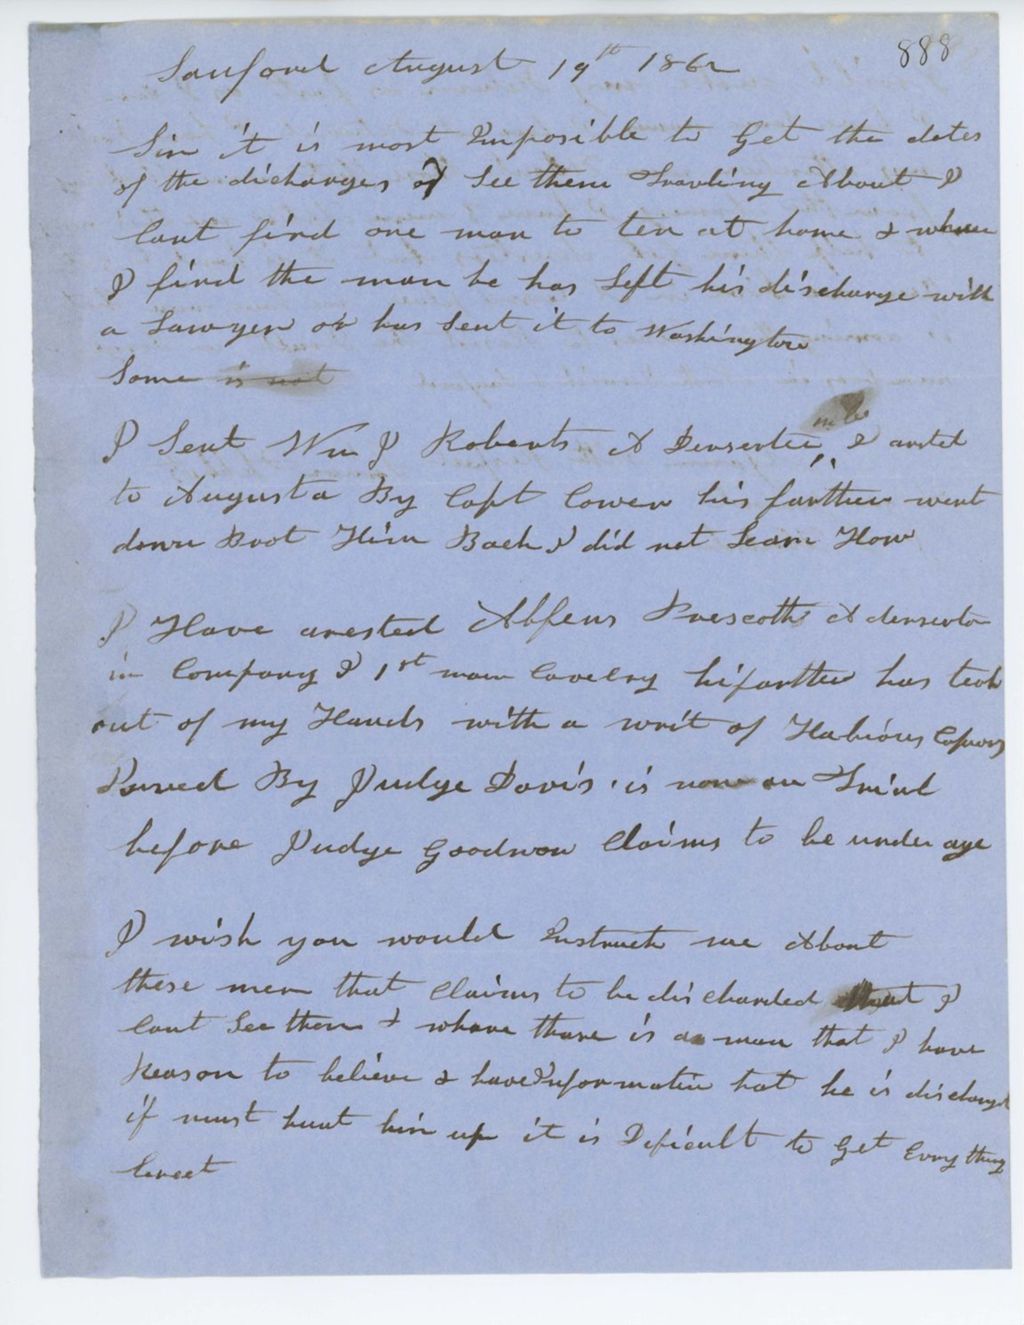 888
Sanford August 19th 1862
Sir it is most Imposible to Get the dates
of the dicharges of See them Travling About I
Cant find one man to ten at home & whare
I find the man he has Left his discharge with
a Lawyer or has Sent it to Washington
Some is not
I Sent Wm J Roberts A Desertee I arsted
to Augusta By Capt Cowen his farther went
down Brot Him Back I did not Learn How
I Have arested Alfeus Prescott A deserto
in Company I 1st main Cavelry his farther has took
out of my Hands with a writ of Habious Copus
By Judge Davis is now on Trial
before Judge Goodnow Claims to be under age
I wish you would Instruct me About
these men that Claims to be discharded that I
Cant See them & whare thare is a man that I have
Reason to believe & have Informatin that he is discharged
if must hunt him up it is Dificult to Get Evry thing
Corect